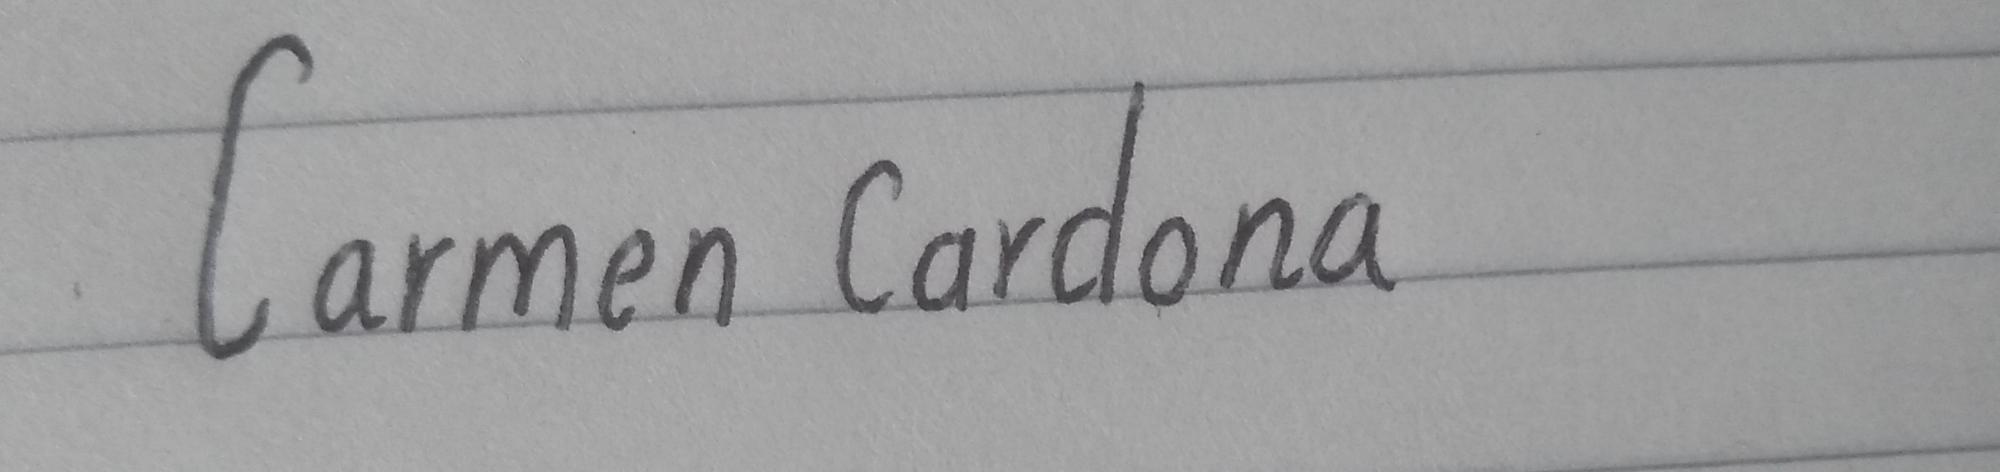 Carmen Cardona